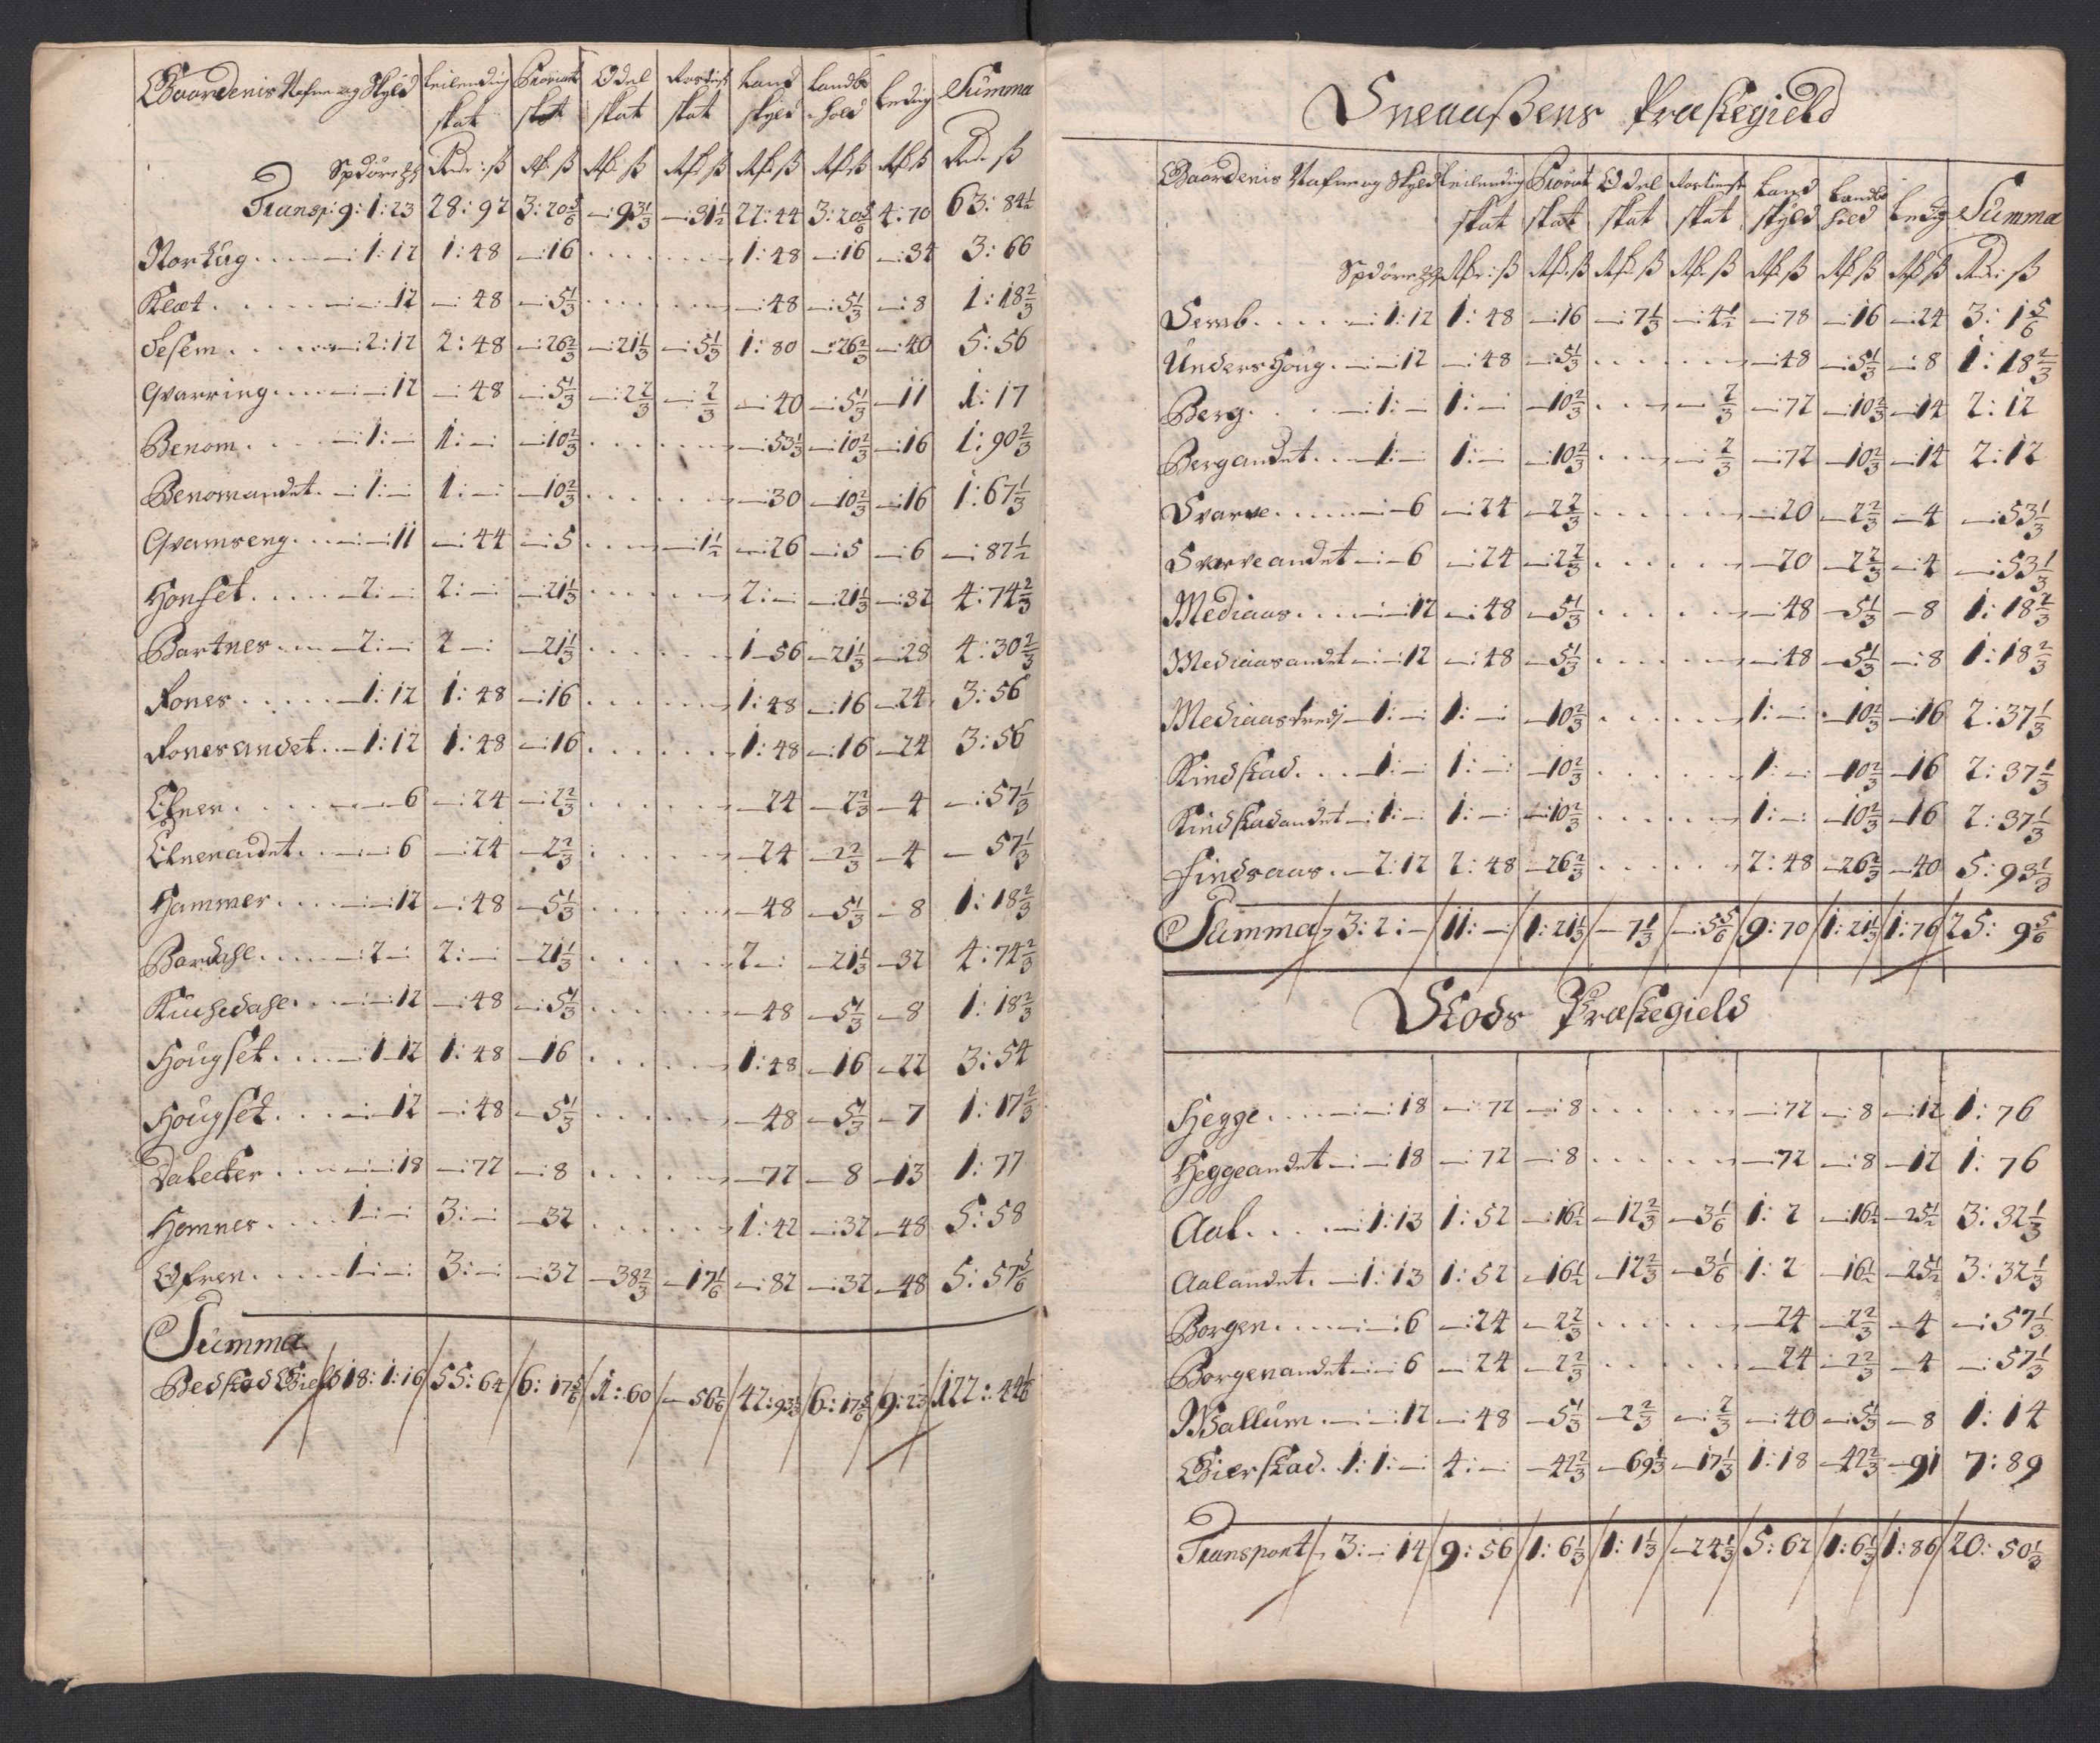 Gaardenis Nafne og Skyld | Leilendings skat | Proviant skat | Odel skat | skat | Land skyld | Landbo hold | Leding | Summa
Spd öre
Transp: 9: 1: 23 | 28: 92 | 3: 20 5/6 | —: 93 1/3 | —: 31 1/2 | 22: 44 | 3: 20 5/6 | 4: 70 | 63: 84 1/2
—: 1: 12 | 1: 48 | —: 16 | . . . . | 1: 48 | —: 16 | —: 34 | 3: 66
Kleot . . . . —: —: 12 | —: 48 | —: 5 1/3 | . . . . | —: 48 | —: 5 1/3 | —: 8 | 1: 18 2/3
Sesem . . . . —: 2: 12 | 2: 48 | —: 26 2/3 | —: 21 1/3 | —: 5 1/3 | 1: 80 | —: 26 2/3 | —: 40 | 5: 56
Qvarring . . . . —: —: 12 | —: 48 | —: 5 1/3 | —: 2 2/3 | —: 2/3 | —: 40 | —: 5 1/3 | —: 11 | 1: 17
Benom . . . . —: 1: — | 1: — | —: 10 2/3 | . . . . | —: 53 1/3 | —: 10 2/3 | —: 16 | 1: 90 2/3
Benomandet . —: 1: — | 1: — | —: 10 2/3 | . . . . | —: 30 | —: 10 2/3 | —: 16 | 1: 67 1/3
Qvamseng . . . —: —: 11 | —: 44 | —: 5 | . . . . | —: 1 1/2 | —: 26 | —: 5 | —: 6 | —: 87 1/2
Honset . . . . —: 2: — | 2: — | —: 21 1/3 | . . . . | 2: — | —: 21 1/3 | —: 32 | 4: 74 2/3
Bartnes . . . —: 2: — | 2 —: | —: 21 1/3 | . . . . | 1: 56 | —: 21 1/3 | —: 28 | 4: 30 2/3
Rones . . . . —: 1: 12 | 1: 48 | —: 16 | . . . . | 1: 48 | —: 16 | —: 24 | 3: 56
Ronesandet . . —: 1: 12 | 1: 48 | —: 16 | . . . . | 1: 48 | —: 16 | —: 24 | 3: 56
Elnen . . . . —: —: 6 | —: 24 | —: 2 2/3 | . . . . | —: 24 | —: 2 2/3 | —: 4 | —: 57 1/3
Elnenandet . . —: —: 6 | —: 24 | —: 2 2/3 | . . . . | —: 24 | —: 2 2/3 | —: 4 | — 57 1/3
Hammer . . . . —: —: 12 | —: 48 | —: 5 1/3 | . . . . | —: 48 | —: 5 1/3 | —: 8 | 1: 18 2/3
Bardahl . . . . —: 2: — | 2: — | —: 21 1/3 | . . . . | 2 —: | —: 21 1/3 | —: 32 | 4: 74 2/3
—: —: 12 | —: 48 | —: 5 1/3 | . . . . | —: 48 | —: 5 1/3 | —: 8 | 1: 18 2/3
Hougset . . . . —: 1: 12 | 1: 48 | —: 16 | . . . . | 1: 48 | —: 16 | —: 22 | 3: 54
Hougset . . . . —: —: 12 | —: 48 | —: 5 1/3 | . . . . | —: 48 | —: 5 1/3 | —: 7 | 1: 17 2/3
—: —: 18 | —: 72 | —: 8 | . . . . | —: 72 | — 8 | —: 13 | 1: 77
Hemnes . . . . 1: —: — | 3: — | —: 32 | . . . . | 1: 42 | —: 32 | —: 48 | 5: 58
1: —: — | 3: — | —: 32 | —: 38 2/3 | —: 17 1/6 | —: 82 | —: 32 | —: 48 | 5: 57 5/6
Summa
18: 1: 16 | 55: 64 | 6: 17 5/6 | 1: 60 | —: 56 1/6 | 42: 93 1/3 | 6: 17 5/6 | 9: 23 | 122: 44 1/6
Sneaaßens Præstegield
Gaardenis Nafne og Skyld | Leilending skat | Proviant skat | Odel skat | skat | Land skyld | Landbo hold | Leding | Summa
Spd öre
Semb . . . . —: 1: 12 | 1: 48 | —: 16 | —: 7 1/3 | —: 4 1/2 | —: 78 | —: 16 | —: 24 | 3: 1 5/6
Undershoug . —: —: 12 | —: 48 | —: 5 1/3 | . . . . | —: 48 | —: 5 1/3 | —: 8 | 1: 18 2/3
Berg . . . —: 1: — | 1: — | —: 10 2/3 | . . . | —: 2/3 | —: 72 | —: 10 2/3 | —: 14 | 2: 12
Bergandet . . —: 1: — | 1: — | —: 10 2/3 | . . . | —: 2/3 | —: 72 | —: 10 2/3 | —: 14 | 2: 12
Svarve . . . . —: —: 6 | —: 24 | —: 2 2/3 | . . . . | —: 20 | —: 2 2/3 | —: 4 | —: 53 1/3
Svarveandet —: —: 6 | —: 24 | —: 2 2/3 | . . . . | —: 20 | —: 2 2/3 | —: 4 | —: 53 1/3
Mediaas . . . —: —: 12 | —: 48 | —: 5 1/3 | . . . . | —: 48 | —: 5 1/3 | —: 8 | 1: 18 2/3
Mediaasandet —: —: 12 | —: 48 | —: 5 1/3 | . . . . | —: 48 | —: 5 1/3 | —: 8 | 1: 18 2/3
Mediaastredj —: 1: — | 1: — | —: 10 2/3 | . . . . | 1: — | —: 10 2/3 | —: 16 | 2: 37 1/3
Kindstad . . . —: 1: — | 1: — | —: 10 2/3 | . . . . | 1: — | —: 10 2/3 | —: 16 | 2: 37 1/3
Kindstadandet —: 1: — | 1: — | —: 10 2/3 | . . . . | 1: — | —: 10 2/3 | —: 16 | 2: 37 1/3
Findsaas . . —: 2: 12 | 2: 48 | —: 26 2/3 | . . . . | 2: 48 | —: 26 2/3 | —: 40 | 5: 93 1/3
Summa 3: 2: — | 11: — | 1: 21 1/3 | —: 7 1/3 | —: 5 5/6 | 9: 70 | 1: 21 1/3 | 1: 76 | 25: 9 5/6
Stods Præstegield
Hegge . . . . —: —: 18 | —: 72 | —: 8 | . . . . | —: 72 | —: 8 | —: 12 | 1: 76
Heggeandet —: —: 18 | —: 72 | —: 8 | . . . . | —: 72 | —: 8 | —: 12 | 1: 76
Aal . . . —: 1: 13 | 1: 52 | —: 16 1/2 | —: 12 2/3 | —: 3 1/6 | 1: 2 | —: 16 1/2 | —: 25 1/2 | 3: 32 1/3
Aalandet . —: 1: 13 | 1: 52 | —: 16 1/2 | —: 12 2/3 | —: 3 1/6 | 1: 2 | —: 16 1/2 | —: 25 1/2 | 3: 32 1/3
Borgen . . . . —: —: 6 | —: 24 | —: 2 2/3 | . . . . | —: 24 | —: 2 2/3 | —: 4 | —: 57 1/3
Borgenandet —: —: 6 | —: 24 | —: 2 2/3 | . . . . | —: 24 | —: 2 2/3 | —: 4 | —: 57 1/3
Wallum . . —: —: 12 | —: 48 | —: 5 1/3 | —: 2 2/3 | —: 2/3 | —: 40 | —: 5 1/3 | —: 8 | 1: 14
Gierstad . 1: 1: — | 4: — | —: 42 2/3 | —: 69 1/3 | —: 17 1/3 | 1: 18 | —: 42 2/3 | —: 91 | 7: 89
Transport 3: —: 14 | 9: 56 | 1: 6 1/3 | 1: 1 1/3 | —: 24 1/3 | 5: 62 | 1: 6 1/3 | 1: 86 | 20: 50 1/3